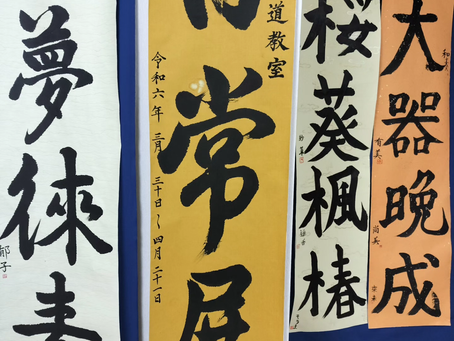 大器晩成
有美
尚美
桜葵楓椿
道教室
常展
令和六年 三月 三十日〜四月 二十一日
夢徠
郁子